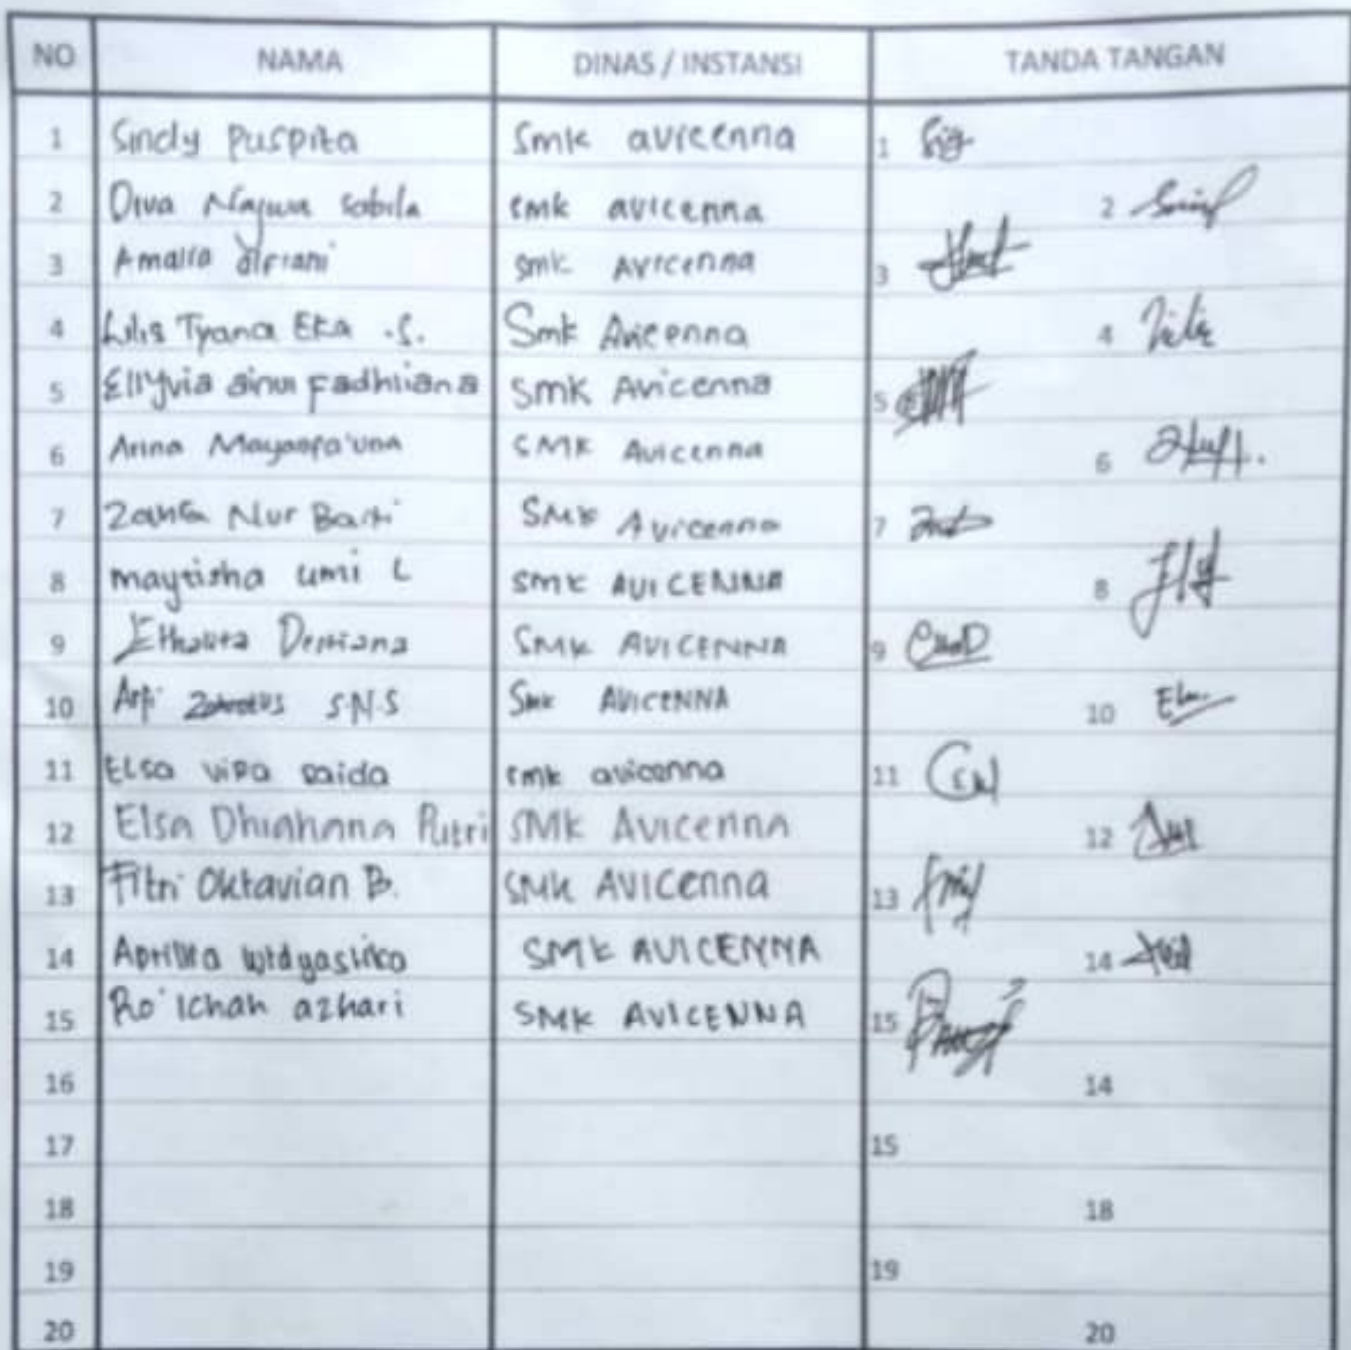 NO NAMA DINAS / INSTANSI TANDA TANGAN
1 Sindy Puspita Smk avicenna 1
2 Diva Najwa Sabila smk avicenna 2
3 Amalia smk Avicenna 3
4 Lilis Tyana Eka .S. Smk Avicenna 4
5 Ellyvia ainun Fadhliana SMK Avicenna 5
6 Arina SMK Avicenna 6
7 Nur SMK Avicenna 7
8 maytisha umi L SMK AVICENNA 8
9 SMK AVICENNA 9
10 S.N.S Smk AVICENNA 10
11 Elsa Vira saida smk avicenna 11
12 Elsa Dhiahana Putri SMK Avicenna 12
13 Fitri Oktavian B. SMK AVICenna 13
14 Aprillia SMK AVICENNA 14
15 Ro'ichah azhari SMK AVICENNA 15
16 14
17 15
18 18
19 19
20 20